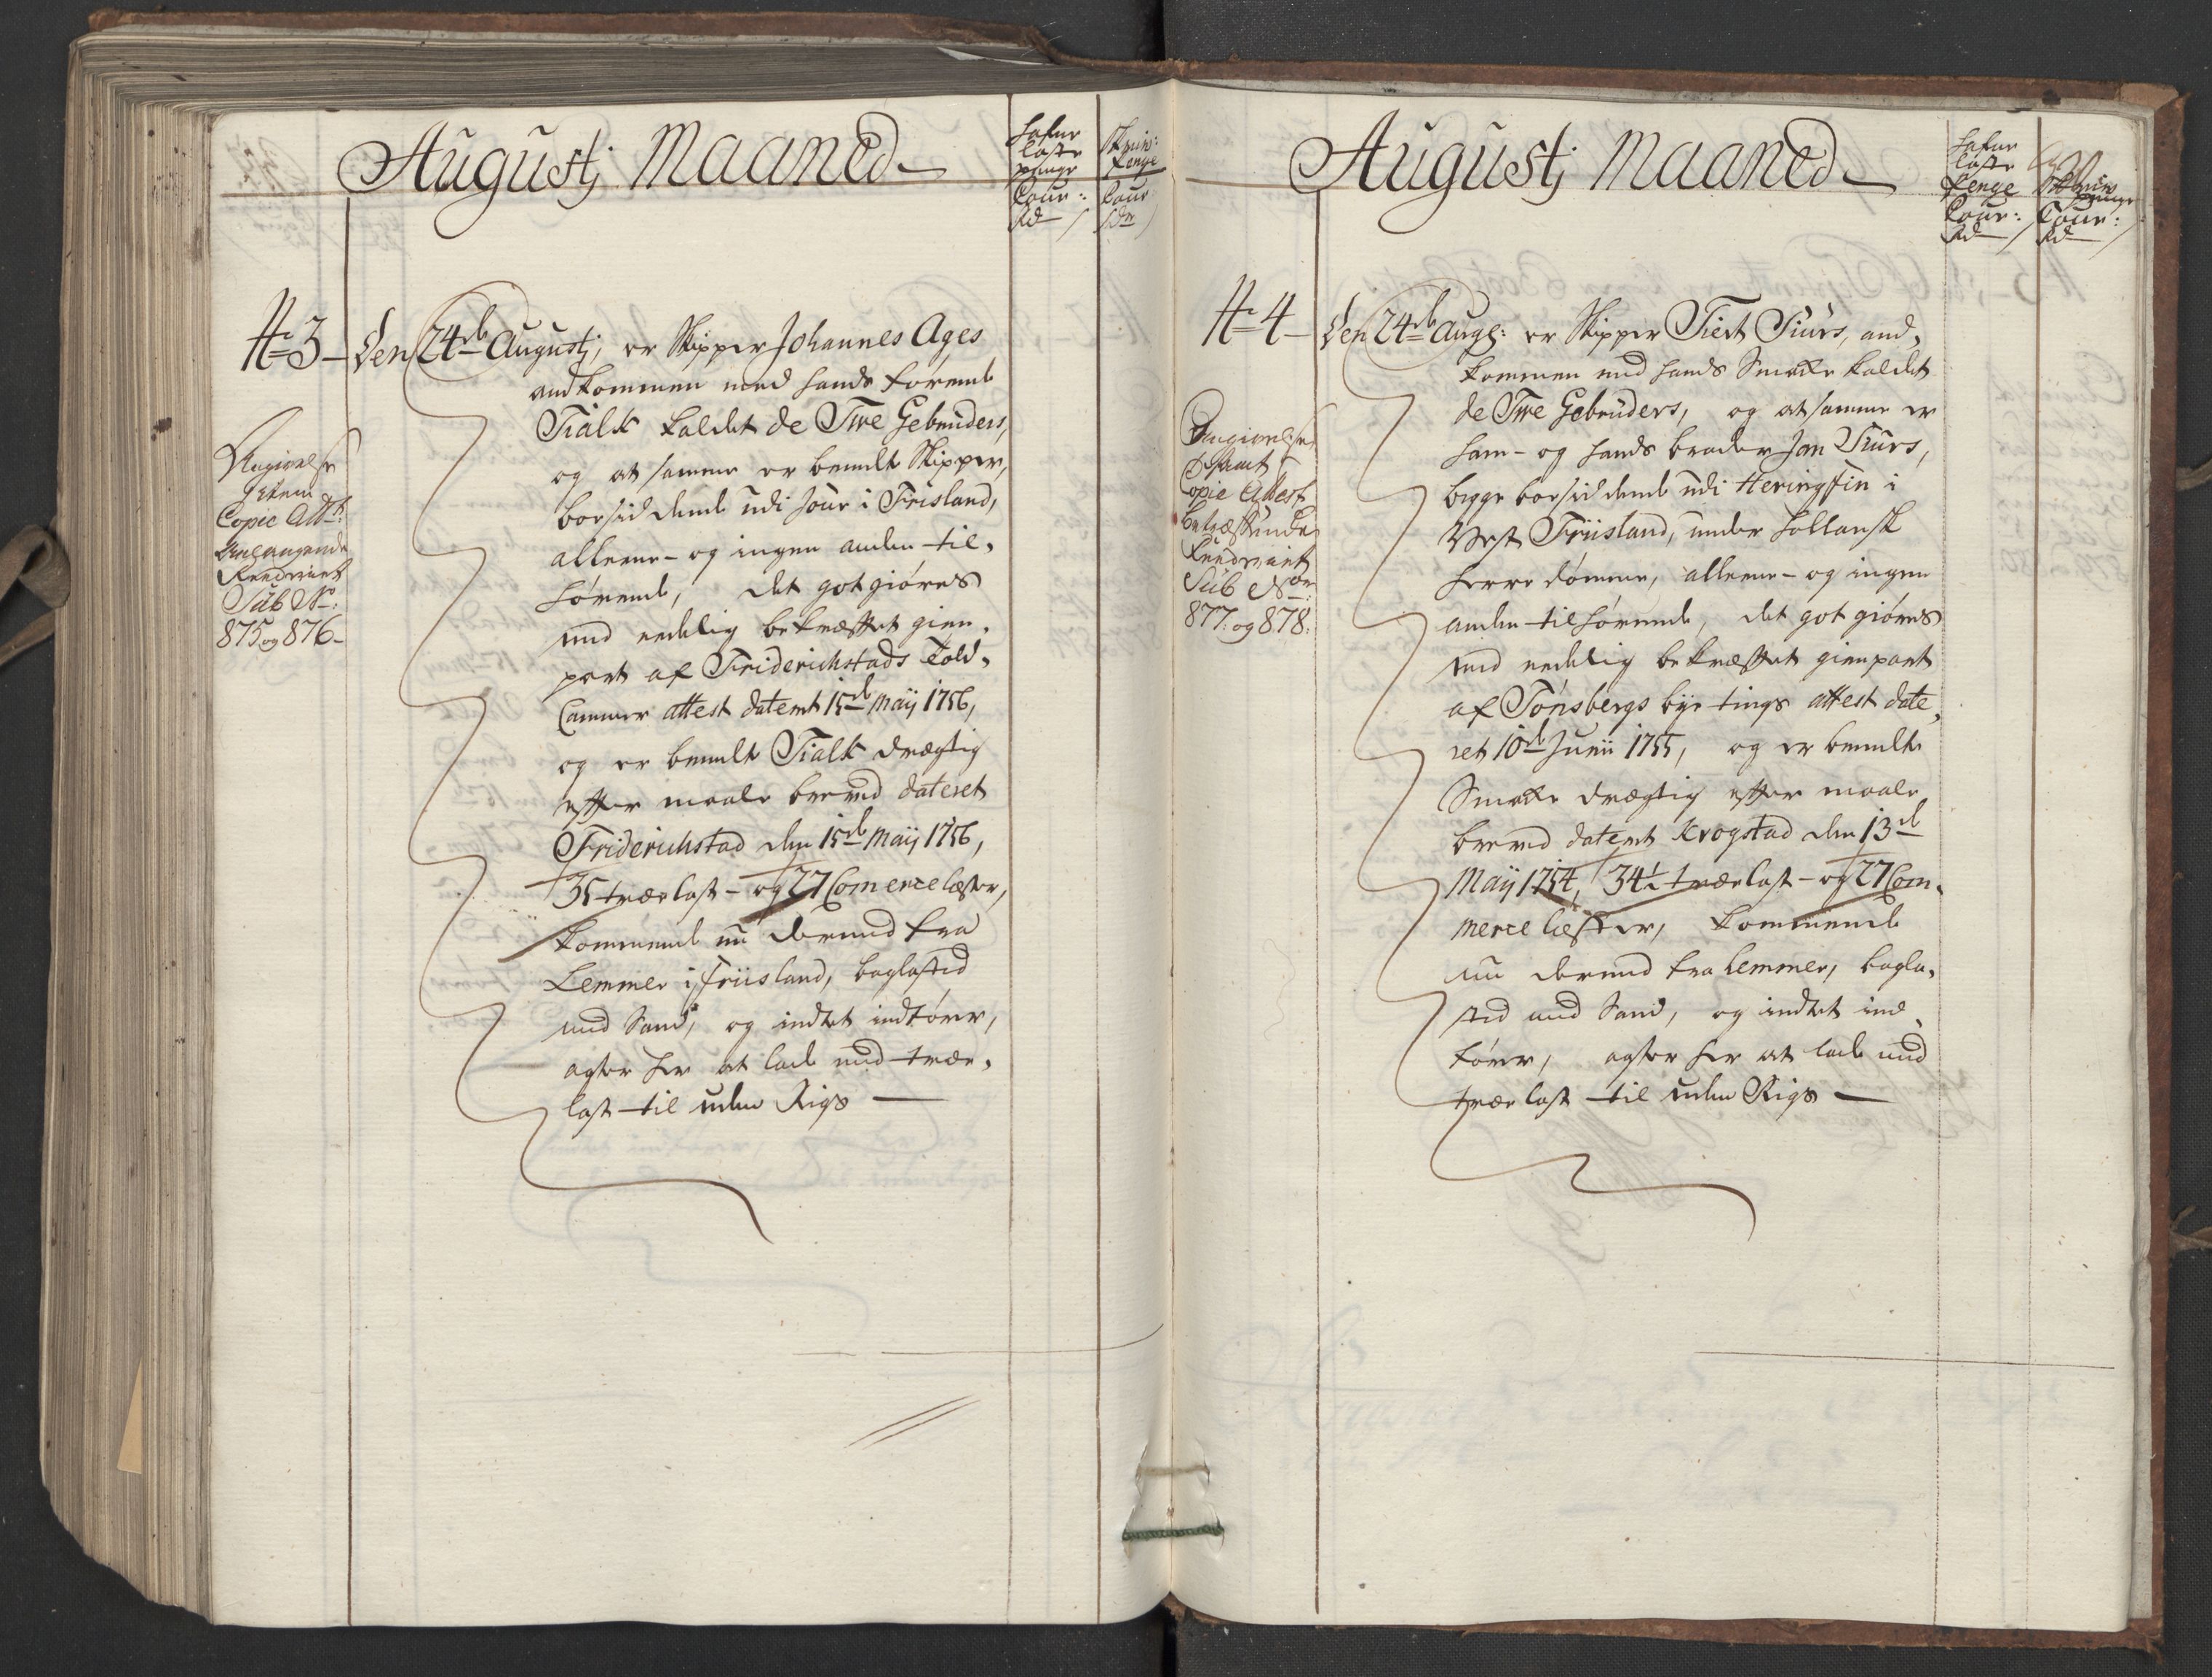 Augustj Maaned
Hafne
laste
penge
Cour:
Rd
Skriv:
Penge
Cour
Rdr
No 3 Den 24de Augustj, er Skipper Johannes Ages
andkommen med hands førende
Tialk kaldet de Twe Gebruders,
og at samme er bemelte Skipper,
boesiddende udi Jour i Friisland,
alleene og ingen anden til,
hørende, det gotgiøres
med ædelig bekræfftet gien,
part af Friderichstads Told,
Cammer attest dateret 15de Maij 1756,
og er bemelte Tialk drægtig
effter maale brevet dateret
Friderichstad den 15de Maij 1756,
35 trælast og 27 Comerce læster,
kommende nu derved fra
Lemmer i Friisland, baglasted
med Sand, og indtet indfører,
agter her at lade med træe,
last til uden Rigs
Angivelse
item
Copie Attst:
Anlangende
Reedriiet
Sub No:
875 og 876
Augustj Maaned
Hafne
laste
Penge
Cour:
Rd
Skriv
penge
Cour:
Rd
No 4 Den 24de Augs: er Skipper Tiert Siurs, and,
kommen med hands Smakke kaldet
de Twe Gebruders, og at samme er
ham og hands broder Jan Siurs,
begge boesiddende udi Heringfin i
West Friisland, under Hollansk
herredømme, alleene og ingen
anden tilhørende, det gotgiøres
med ædelig bekræfftet gienpart
af Tønsbergs bÿe tings attest date,
ret 10de Junii 1755, og er bemelte
Smakke drægtig effter maale
brevet dateret Krogstad den 13de
Maij 1754, 34½ trælast og 27 Com,
merce læster, kommende
nu derved fra Lemmer, bagla,
sted med Sand, og indtet ind,
fører, agter her at lade med
træelast til uden Rigs
Angivelse
samt
Copie Attest
betreffende
Reedriiet
Sub Nor:
877. og 878.